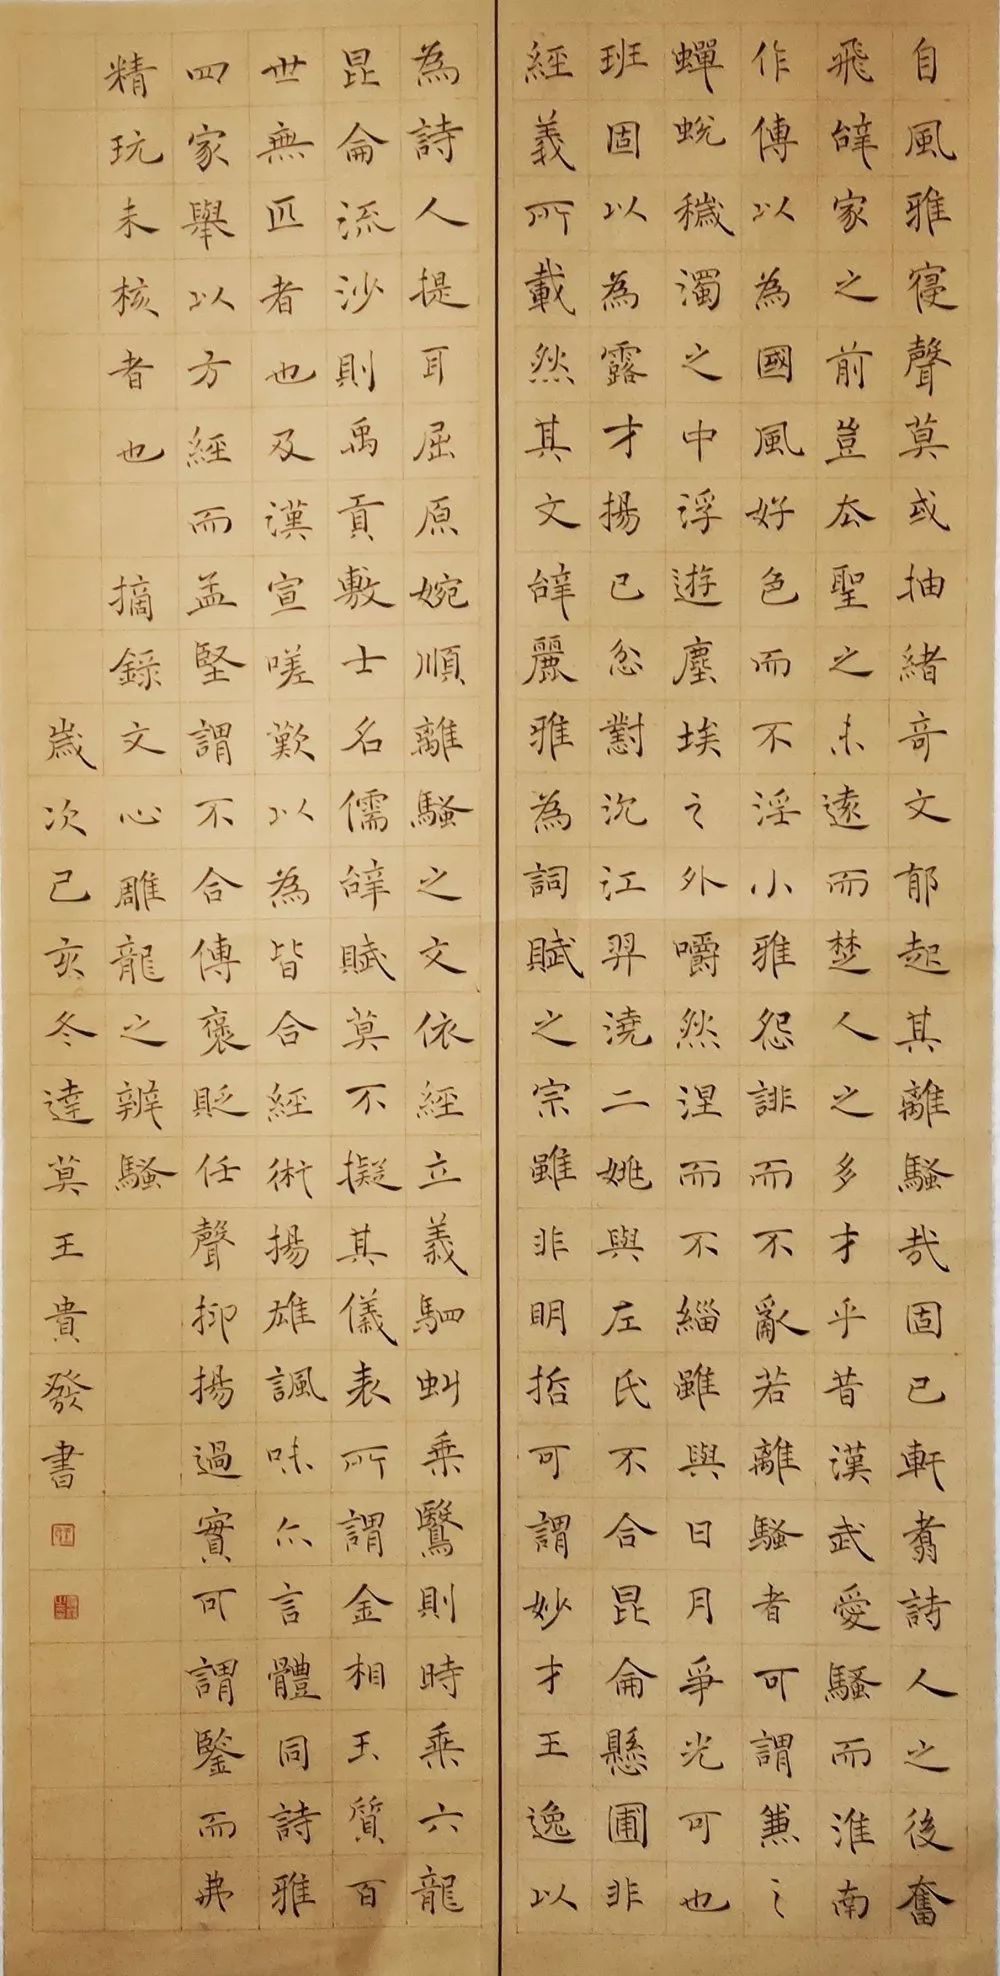 自風雅寑聲莫或抽緒奇文郁起其離騷哉固已軒翥詩人之後奮
飛辭家之前豈去聖之未遠而楚人之多才乎昔漢武愛騷而淮南
作傳以為國風好色而不淫小雅怨誹而不亂若離騷者可謂兼之
蟬蛻穢濁之中浮遊塵埃之外嚼然涅而不緇雖與日月爭光可也
班固以為露才揚己忿懟沉江羿澆二姚與左氏不合昆侖懸圃非
經義所載然其文辭麗雅為詞賦之宗雖非明哲可謂妙才王逸以
為詩人提耳屈原婉順離騷之文依經立義駟虯乘鷖則時乘六龍
昆侖流沙則禹貢敷士名儒辭賦莫不擬其儀表所謂金相玉質百
世無匹者也及漢宣嗟歎以為皆合經術揚雄諷味亦言體同詩雅
四家舉以方經而孟堅謂不合傳褒貶任聲抑揚過實可謂鑒而弗
精玩未核者也 摘錄文心雕龍之辨騷
歲次己亥冬達莫王貴發書